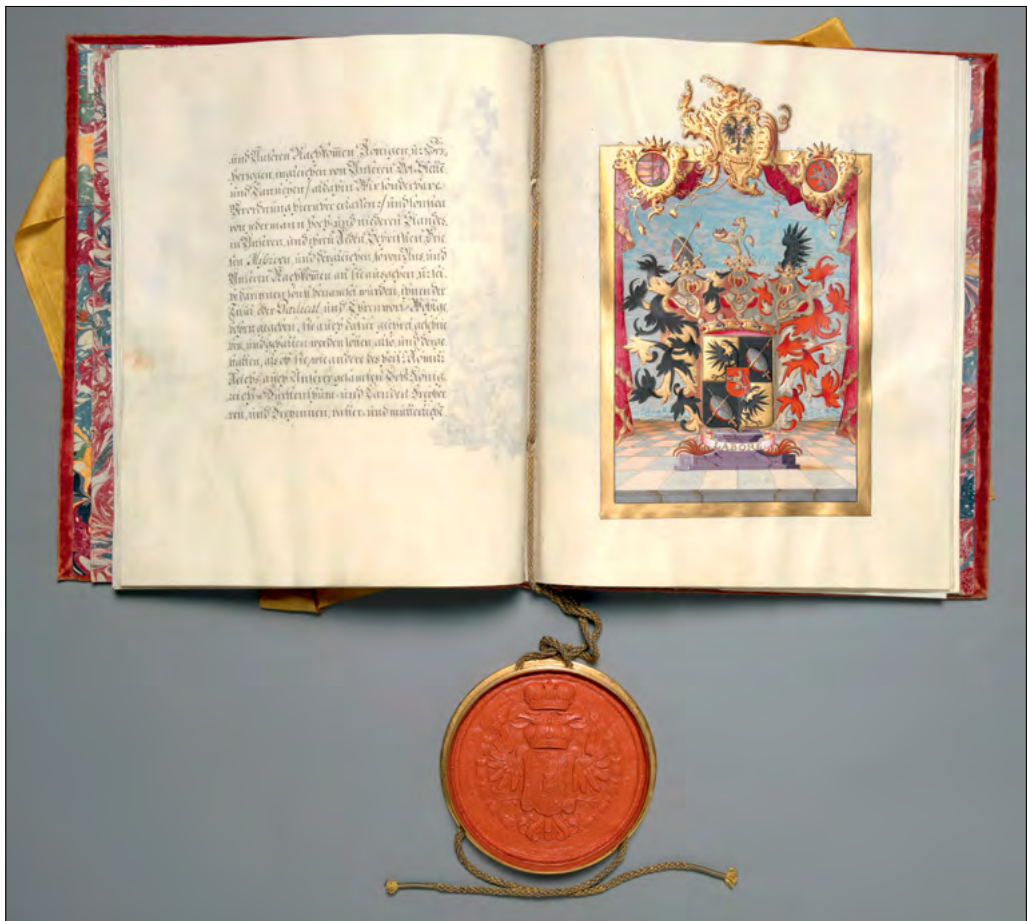 und Unseren Nachkom̄en Königen, u: Ertz-
herzogen, ingleichen von Unseren
und Wir sonderbare
Verordnung hierüber erlassen :/ und sonsten
von jedermann hoch, und niederen Standes,
in Unseren, und ihren Reden, Schrifften, Brie-
fen, Missiven, und dergleichen, so von Uns, und
Unseren Nachkom̄en an sie ausgehen, u:
darinnen benannet wurden, ihnen der
Titul oder und Ehrenwort Wohlge-
bohrn gegeben, sie auch dafür geehret,
und gehalten werden sollen, also, und derge-
stalten, als ob sie, wie andere des heil: Römis:
Reichs auch Unserer gesamten Erb-König-
reich- Fürstenthum- und Landen Freyher-
ren, und Freyinnen, vatter- und mütterliche
LABORE